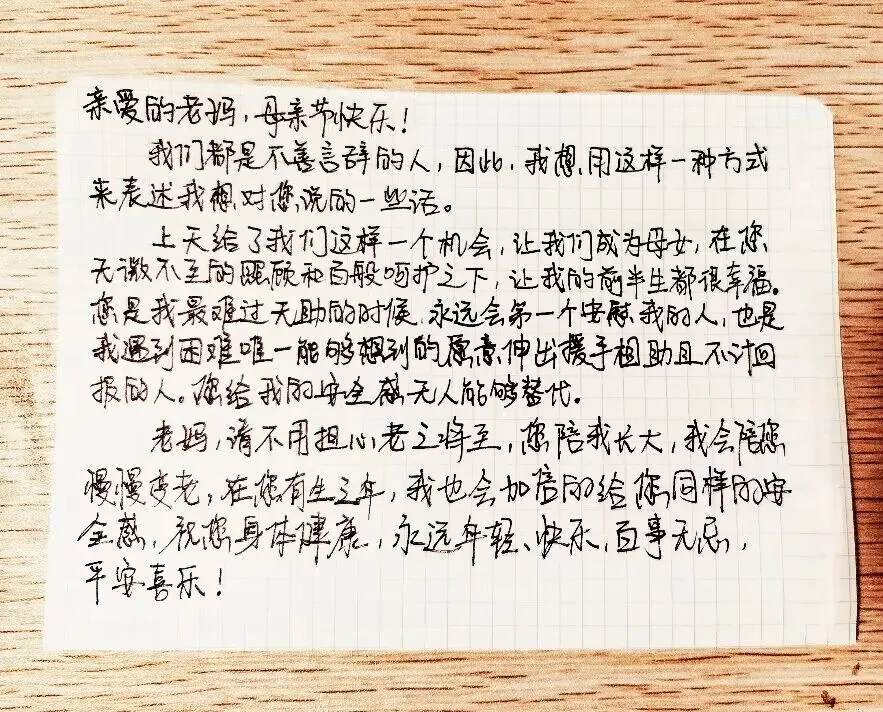 亲爱的老妈，母亲节快乐！
我们都是不善言辞的人，因此，我想用这样一种方式
来表述我想对您说的一些话。
上天给了我们这样一个机会，让我们成为母女，在您
无微不至的照顾和百般呵护之下，让我的前半生都很幸福。
您是我最难过无助的时候，永远会第一个安慰我的人，也是
我遇到困难唯一能够想到的愿意伸出援手相助且不计回
报的人。您给我的安全感无人能够替代。
老妈，请不用担心老之将至，您陪我长大，我会陪您
慢慢变老，在您有生之年，我也会加倍的给您同样的安
全感，祝您身体健康，永远年轻、快乐，百事无忌，
平安喜乐！